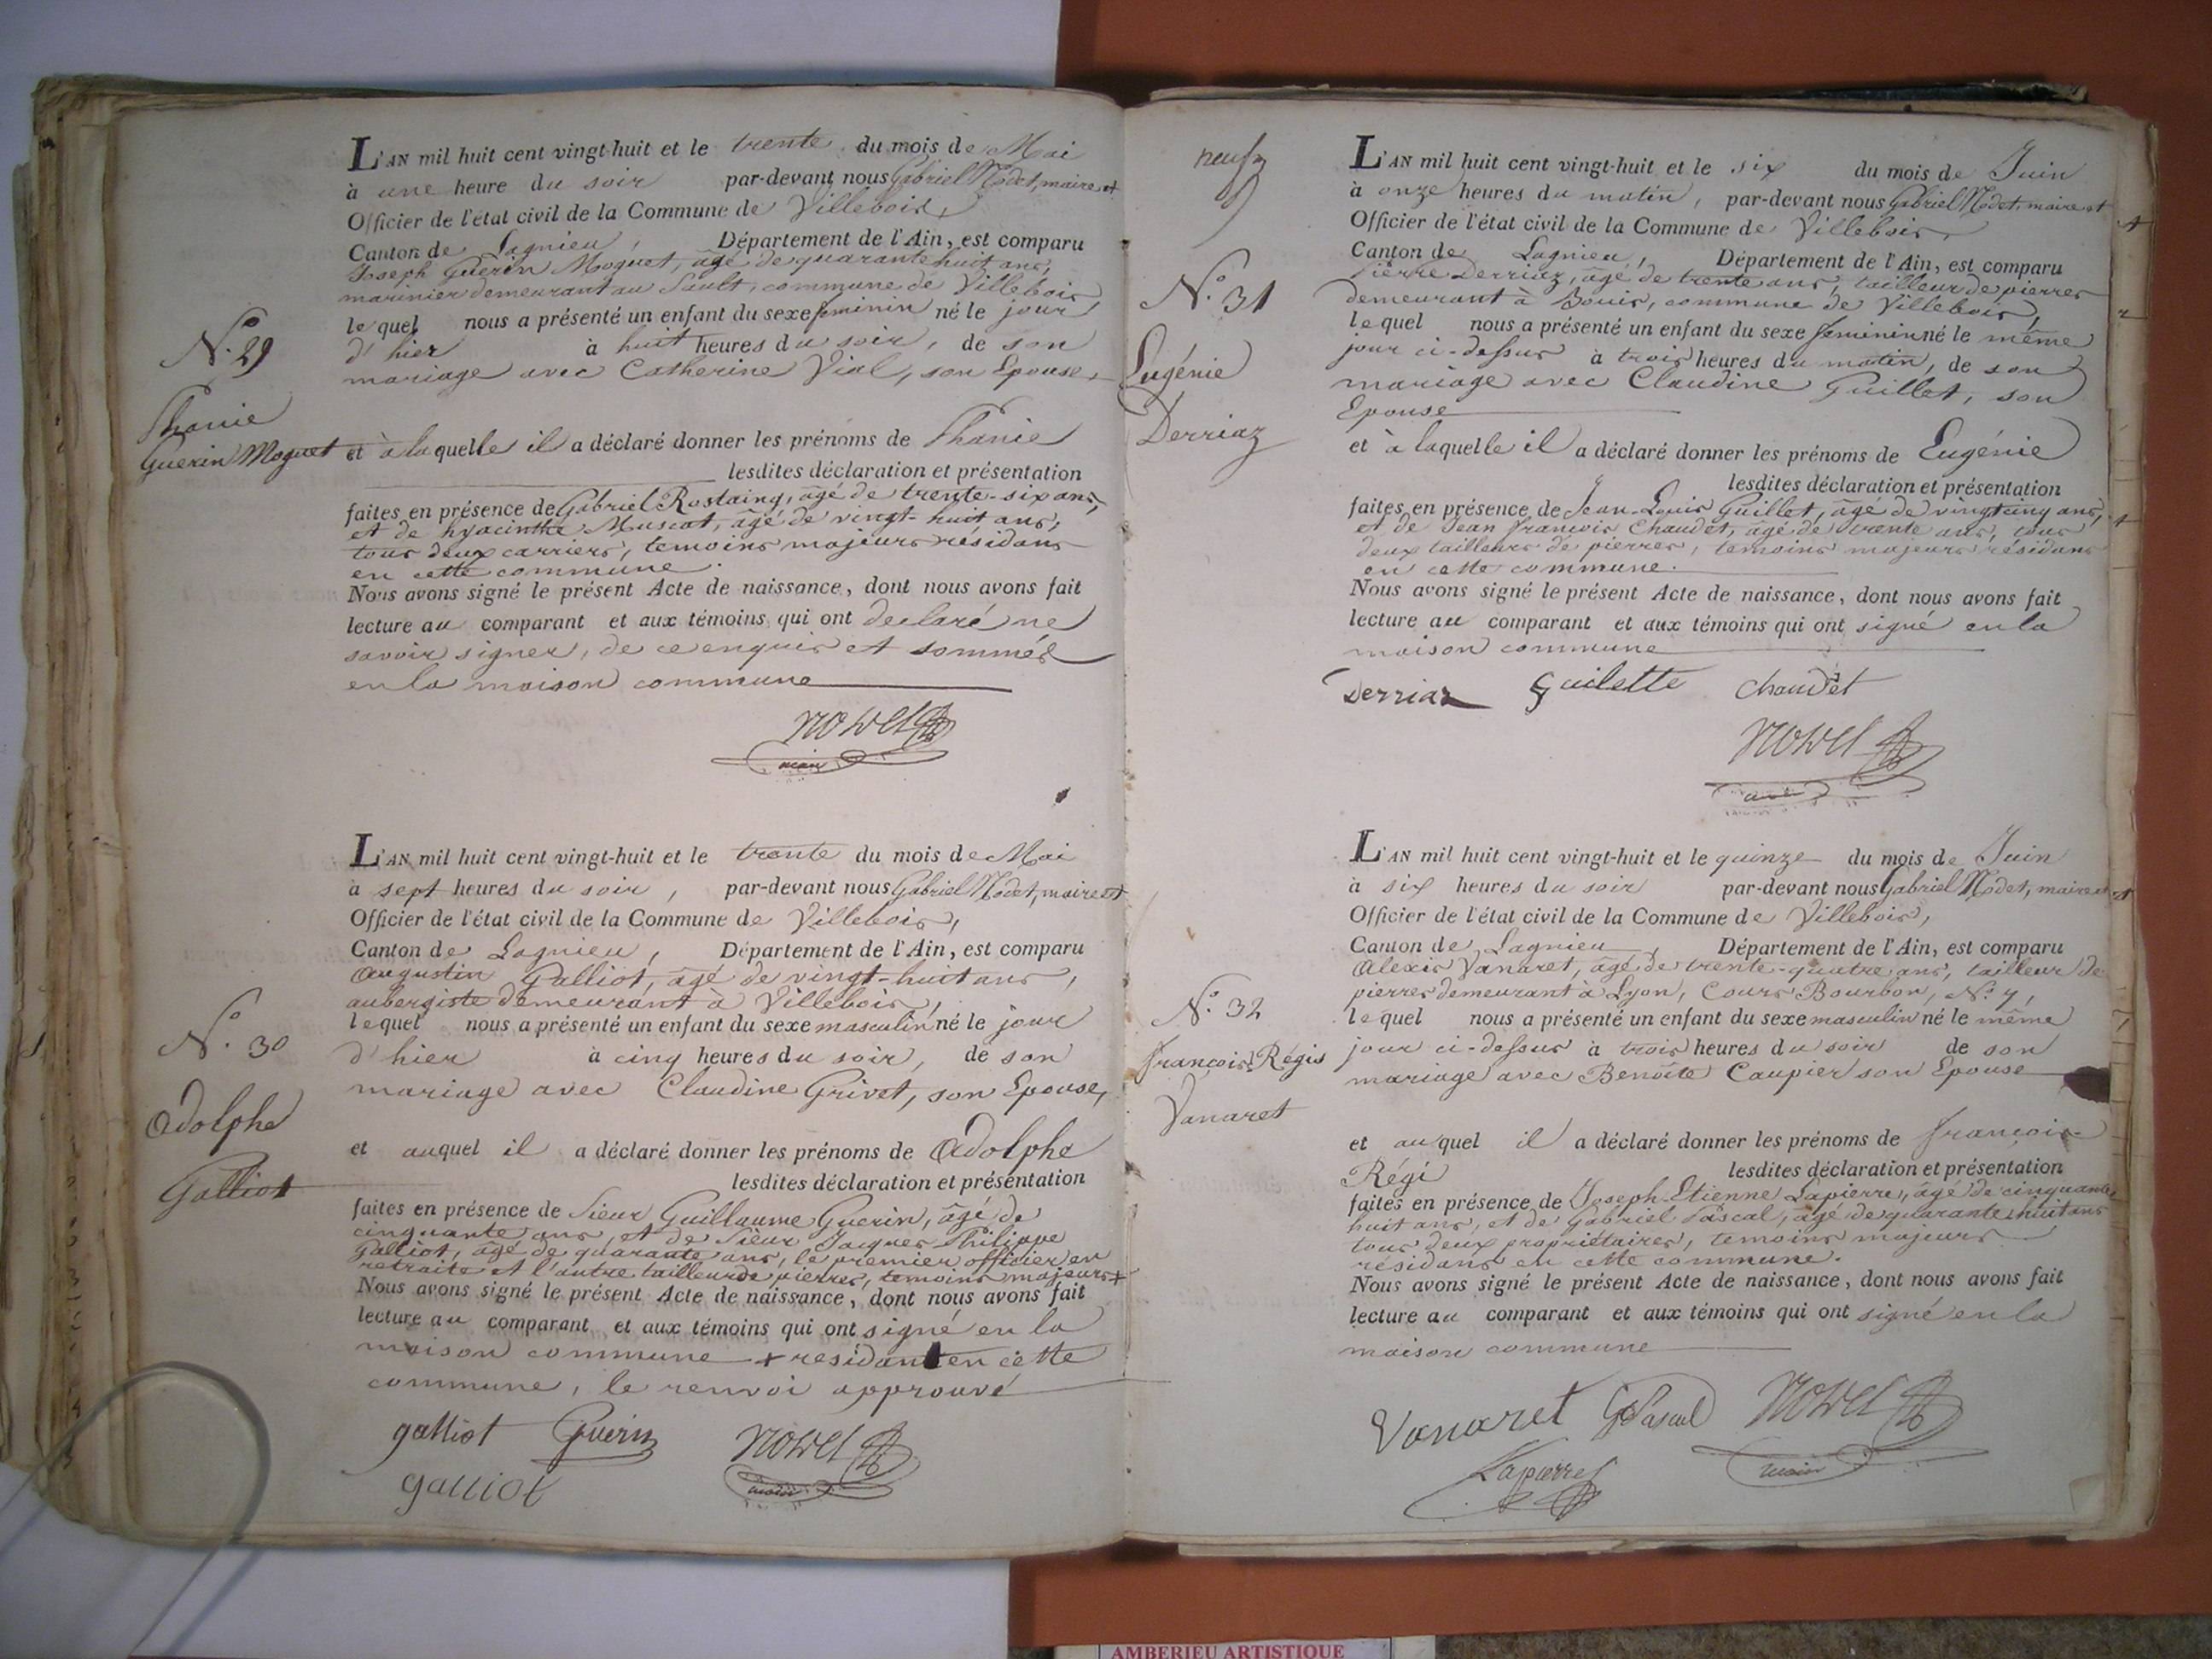 L'AN mil huit cent vingt-huit et le trente du mois de Mai
à une heure du soir par-devant nous Gabriel Nodet, maire et
Officier de l'état civil de la Commune de Villebois,
Canton de Lagnieu, Département de l'Ain, est comparu
Joseph Guerin Moquet, âgé de quarante huit ans,
marinier demeurant au Sault, commune de Villebois,
lequel nous a présenté un enfant du sexe feminin né le jour
d'hier à huit heures du soir, de son
mariage avec Catherine Vial, son Epouse,
N.° 29
Phanie
Guerin Moquet
et à laquelle il a déclaré donner les prénoms de Phanie
lesdites déclaration et présentation
faites en présence de Gabriel Rostaing, âgé de trente-six ans,
et de hyacinthe Muscat, âgé de vingt-huit ans,
tous deux carriers, temoins majeurs résidans
en cette commune.
Nous avons signé le présent Acte de naissance, dont nous avons fait
lecture au comparant et aux témoins qui ont declaré ne
savoir signer, de ce enquis et sommés
en la maison commune
Nodet
maire
L'AN mil huit cent vingt-huit et le trente du mois de Mai
à sept heures du soir, par-devant nous Gabriel Nodet, maire et
Officier de l'état civil de la Commune de Villebois,
Canton de Lagnieu, Département de l'Ain, est comparu
Augustin Galliot, âgé de vingt-huit ans,
aubergiste demeurant à Villebois,
lequel nous a présenté un enfant du sexe masculin né le jour
d'hier à cinq heures du soir, de son
mariage avec Claudine Grivet, son Epouse,
N.° 30
Adolphe
Galliot
et auquel il a déclaré donner les prénoms de Adolphe
lesdites déclaration et présentation
faites en présence de Sieur Guillaume Guerin, âgé de
cinquante ans, et de Sieur Jacques Philippe
Galliot, âgé de quarante ans, le premier officier en
retraite et l'autre tailleur de pierres, temoins majeurs +
Nous avons signé le présent Acte de naissance, dont nous avons fait
lecture au comparant et aux témoins qui ont signé en la
maison commune + residant en cette
commune, le renvoi approuvé
galliot Guerin Nodet
galliot maire
neuf
L'AN mil huit cent vingt-huit et le six du mois de Juin
à onze heures du matin, par-devant nous Gabriel Nodet, maire et
Officier de l'état civil de la Commune de Villebois,
Canton de Lagnieu, Département de l'Ain, est comparu
Pierre Derriaz, âgé de trente ans, tailleur de pierres
demeurant à Bouis, commune de Villebois,
lequel nous a présenté un enfant du sexe feminin né le même
jour ci-dessus à trois heures du matin, de son
mariage avec Claudine Guillet, son
Epouse
N.° 31
Eugénie
Derriaz
et à laquelle il a déclaré donner les prénoms de Eugénie
lesdites déclaration et présentation
faites en présence de Jean-Louis Guillet, âgé de vingt cinq ans,
et de Jean françois Chaudet, âgé de trente ans, tous
deux tailleurs de pierres, temoins majeurs résidans
en cette commune.
Nous avons signé le présent Acte de naissance, dont nous avons fait
lecture au comparant et aux témoins qui ont signé en la
maison commune
Derriaz Guilette Chaudet
Nodet
L'AN mil huit cent vingt-huit et le quinze du mois de Juin
à six heures du soir par-devant nous Gabriel Nodet, maire et
Officier de l'état civil de la Commune de Villebois,
Canton de Lagnieu, Département de l'Ain, est comparu
Alexis Vanaret, âgé de trente-quatre ans, tailleur de
pierres demeurant à Lyon, Cours Bourbon, N.° 7,
lequel nous a présenté un enfant du sexe masculin né le même
jour ci-dessus à trois heures du soir de son
mariage avec Benoîte Caupier son Epouse
N.° 32
françois-Régis
Vanaret
et auquel il a déclaré donner les prénoms de françois-
Régi lesdites déclaration et présentation
faites en présence de Joseph-Etienne Lapierre, âgé de cinquante
huit ans, et de Gabriel Pascal, âgé de quarante huit ans
tous deux propriétaires, temoins majeurs
résidans en cette commune.
Nous avons signé le présent Acte de naissance, dont nous avons fait
lecture au comparant et aux témoins qui ont signé en la
maison commune
Vanaret GPascal Nodet
Lapierre maire
AMBERIEU ARTISTIQUE